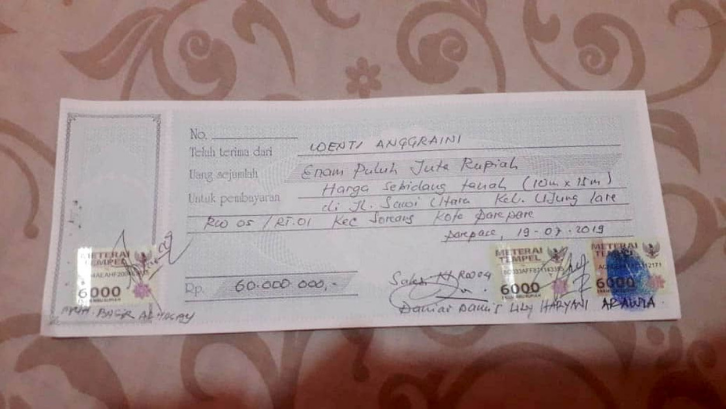 No.
Telah terima dari WENTI ANGGRAINI
Uang sejumlah Enam Puluh Juta Rupiah
Untuk pembayaran Harga Sebidang tanah (10m x 15m)
di Jl. Sawi Utara Kel. Ujung lare
RW 05 / RT.01 Kec Soreang Kota Parepare
Parepare, 19-07-2019
METERAI TEMPEL
6000
METERAI TEMPEL
6000
METERAI TEMPEL
6000
Rp. 60.000.000,-
Saksi
Daniar Damis Liby HARYANI